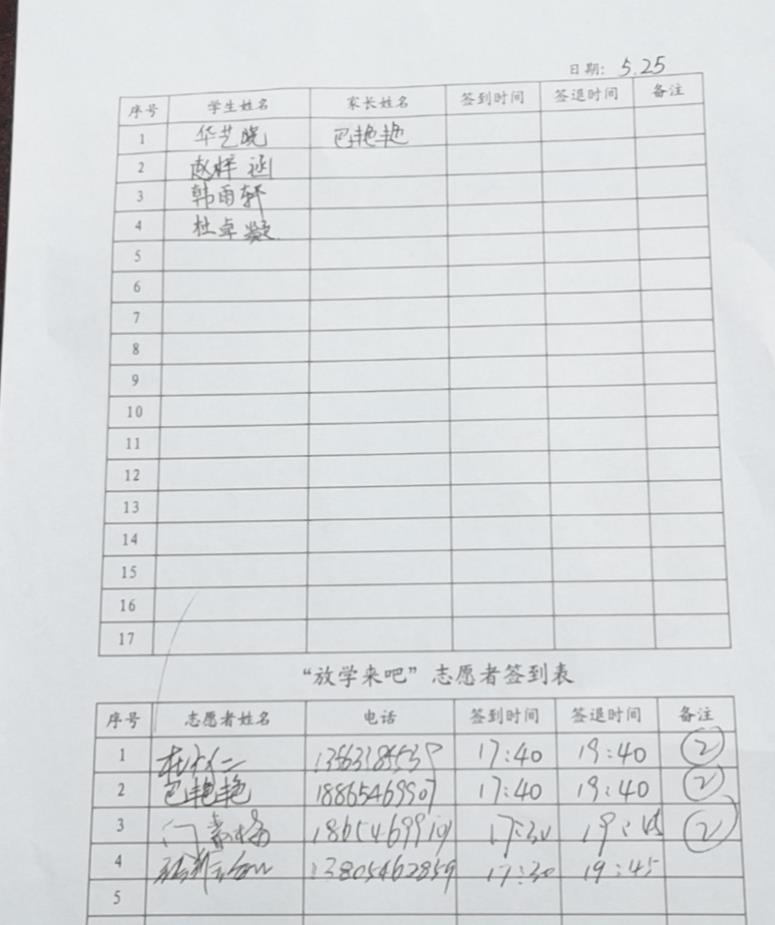 日期: 5.25
序号 学生姓名 家长姓名 签到时间 签退时间 备注
1 华艺晓 巴艳艳
2 赵梓涵
3 韩雨轩
4 杜卓凝
5
6
7
8
9
10
11
12
13
14
15
16
17
“放学来吧”志愿者签到表
序号 志愿者姓名 电话 签到时间 签退时间 备注
1 17:40 19:40 ②
2 巴艳艳 18865469907 17:40 19:40 ②
3 17:30 ②
4 13805462859 17:30 19:45
5